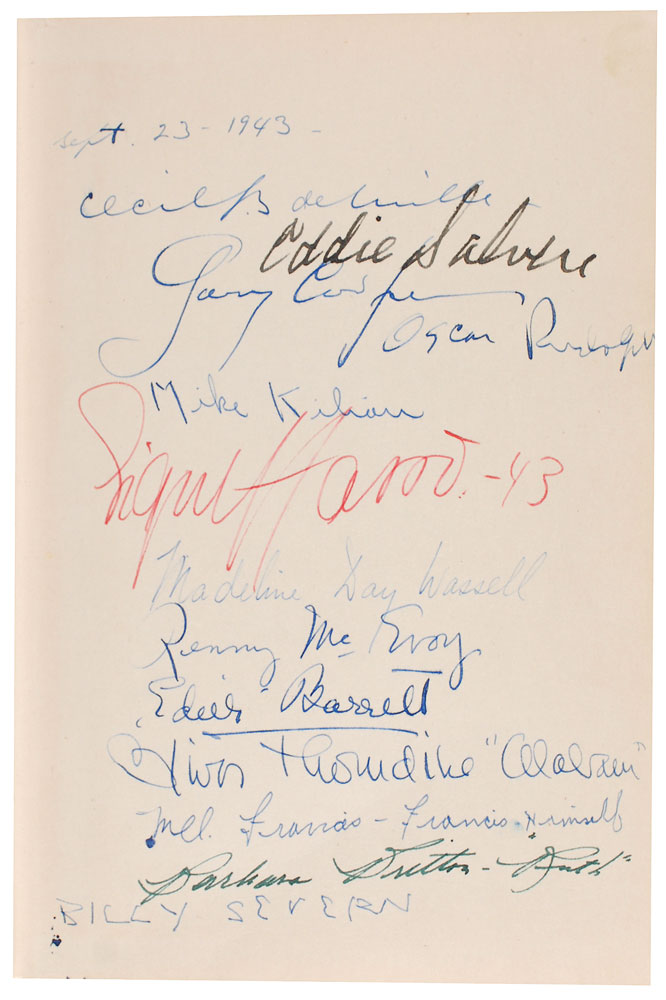 Sept. 23 - 1943 -
Cecil B deMille
Eddie Salven
Gary Cooper
Oscar Rudolph
Mike Kilian
Signe Hasso. -43
Madeline Day Wassell
Renny McEvoy
Barrett
Oliver Thorndike "Alabam"
Mel. Francis - Francis Himself
Barbara Britton - "Ruth"
BILLY SEVERN